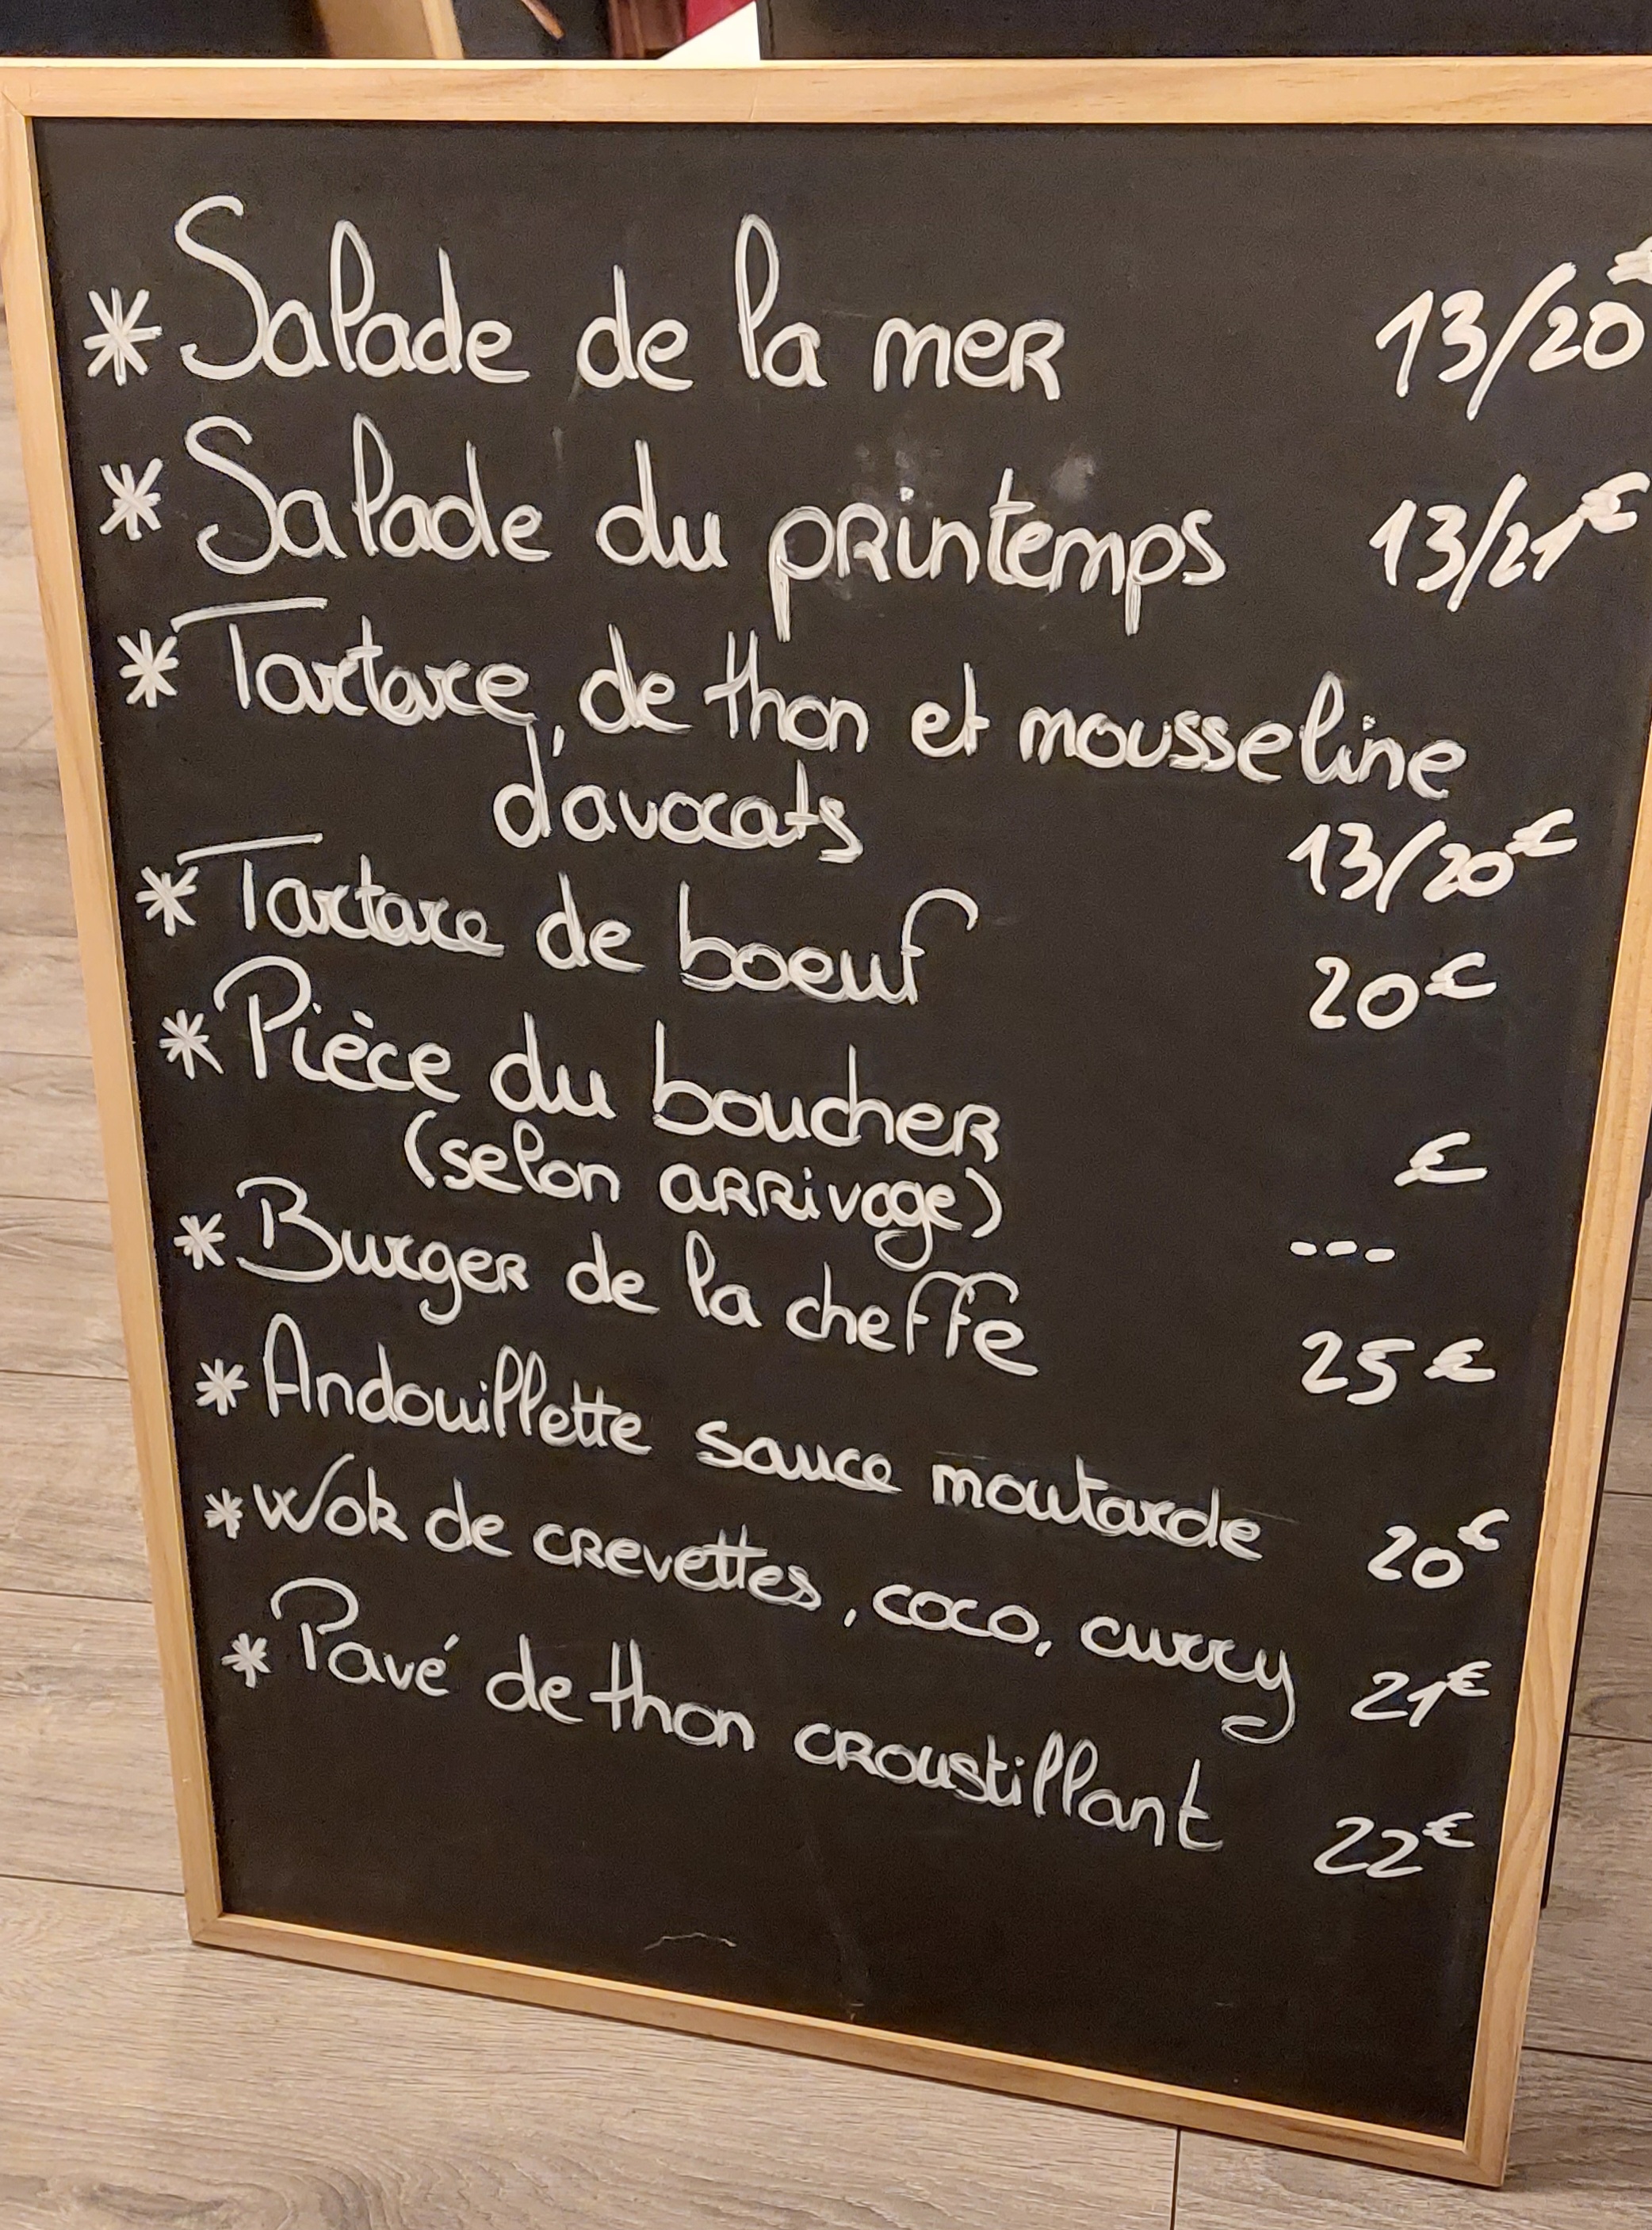 * Salade de la mer 13/20€
* Salade du printemps 13/21€
* Tartare, de thon et mousseline
d'avocats 13/20€
* Tartare de boeuf 20€
* Pièce du boucher €
(selon arrivage) ---
* Burger de la cheffe 25€
* Andouillette sauce moutarde 20€
* Wok de crevettes, coco, curry 21€
* Pavé de thon croustillant 22€